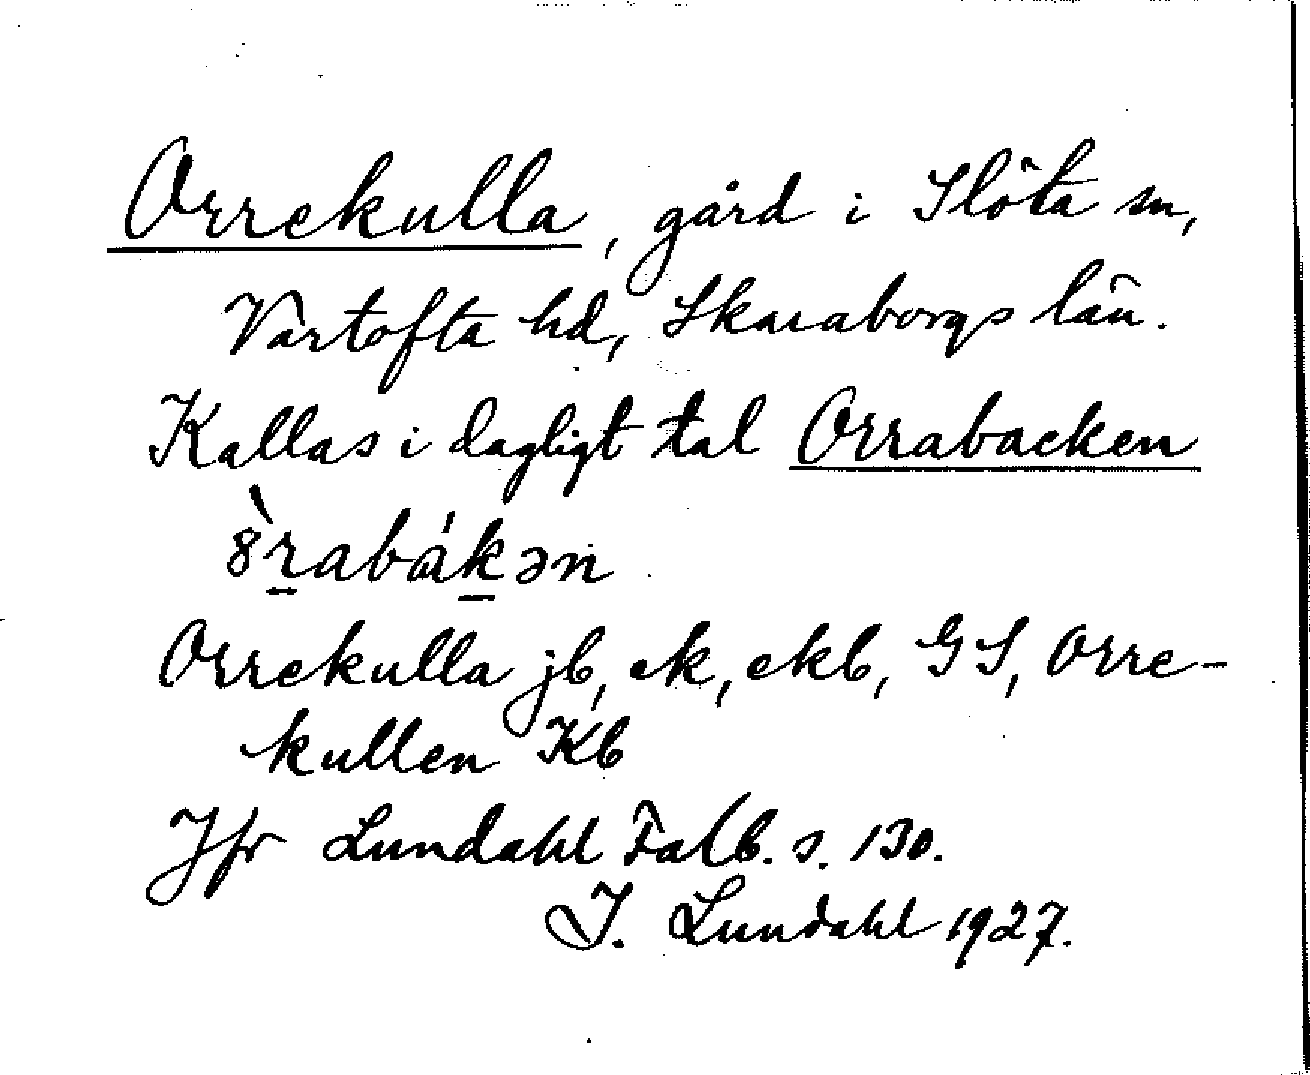 Orrekulla, gård i Slöta sn,
Vartofta hd, Skaraborgs län.
Kallas i dagligt tal Orrabacken
8̀r̠abák̠ən
Orrekulla jb, ek, ekb, GS, Orre-
kullen Kb
Jfr Lundahl Falb. s. 130.
I. Lundahl 1927.